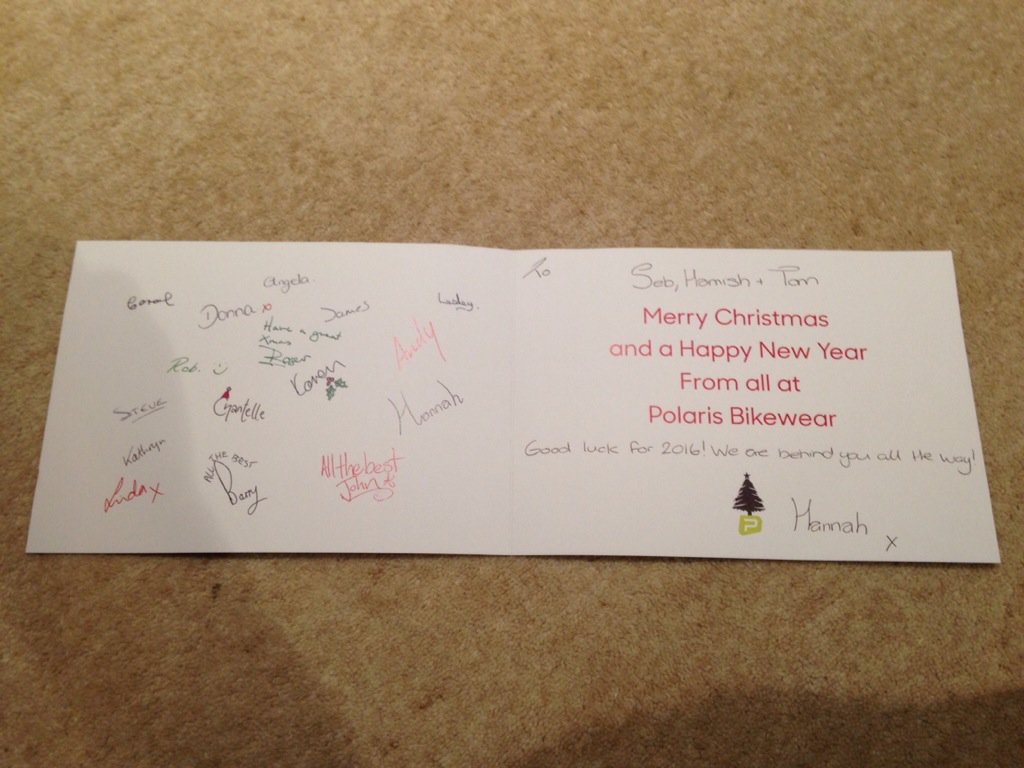 Angela.
Carol
Donna x
James
Lesley.
Have a great
Xmas
Roger
Andy
Rob. :)
Karen
Steve
Chantelle
Hannah
Kathryn
ALL THE BEST
Barry
All the best
John
Linda x
To
Seb, Hamish + Tom
Merry Christmas
and a Happy New Year
From all at
Polaris Bikewear
Good luck for 2016! We are behind you all the way!
P
Hannah
x